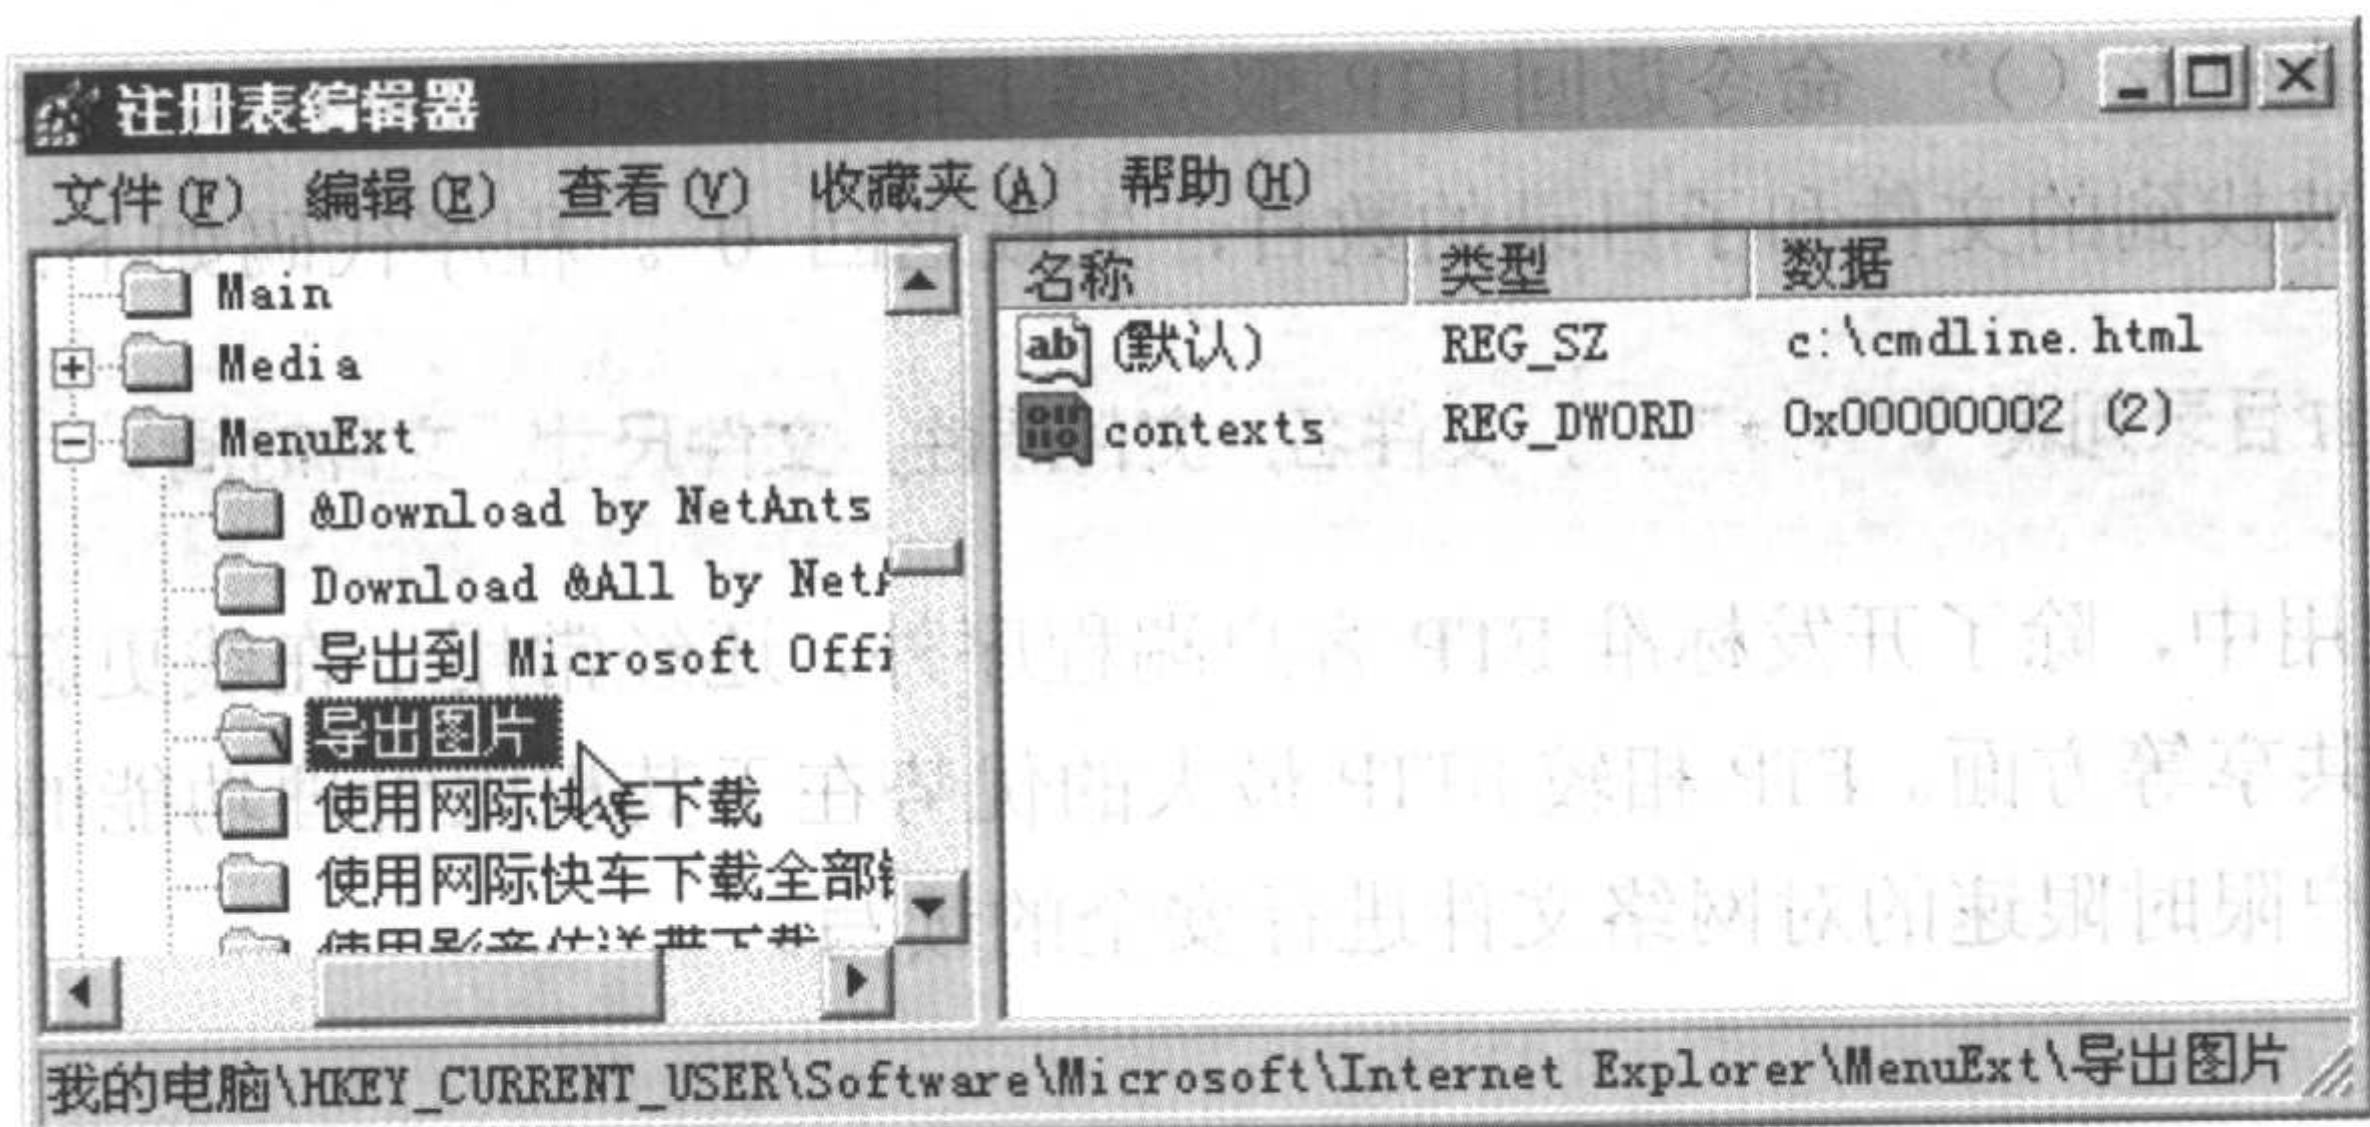 注册表编辑器
文件(F) 编辑(E) 查看(V) 收藏夹(A) 帮助(H)
Main
Media
MenuExt
&Download by NetAnts
Download &All by NetA
导出到 Microsoft Offi
导出图片
使用网际快车下载
使用网际快车下载全部链
使用影音传送带下载
名称 类型 数据
(默认) REG_SZ c:\cmdline.html
contexts REG_DWORD 0x00000002 (2)
我的电脑\HKEY_CURRENT_USER\Software\Microsoft\Internet Explorer\MenuExt\导出图片